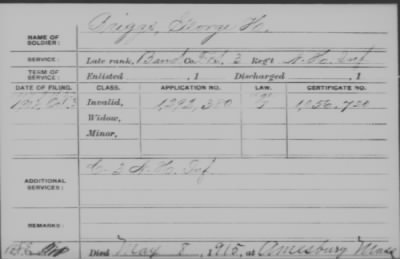 Briggs, George H.
NAME OF
SOLDIER:
SERVICE:
Late rank, Band Co. F&S, 2 Reg't N.H. Inf.
TERM OF
SERVICE:
Enlisted , 1 Discharged , 1
DATE OF FILING.
CLASS.
APPLICATION NO.
LAW.
CERTIFICATE NO.
Invalid,
1,292,380
1,056,720
Widow,
Minor,
ADDITIONAL
SERVICES:
C. 3 N.H. Inf.
REMARKS:
Died May 8, 1915, at Amesbury Mass